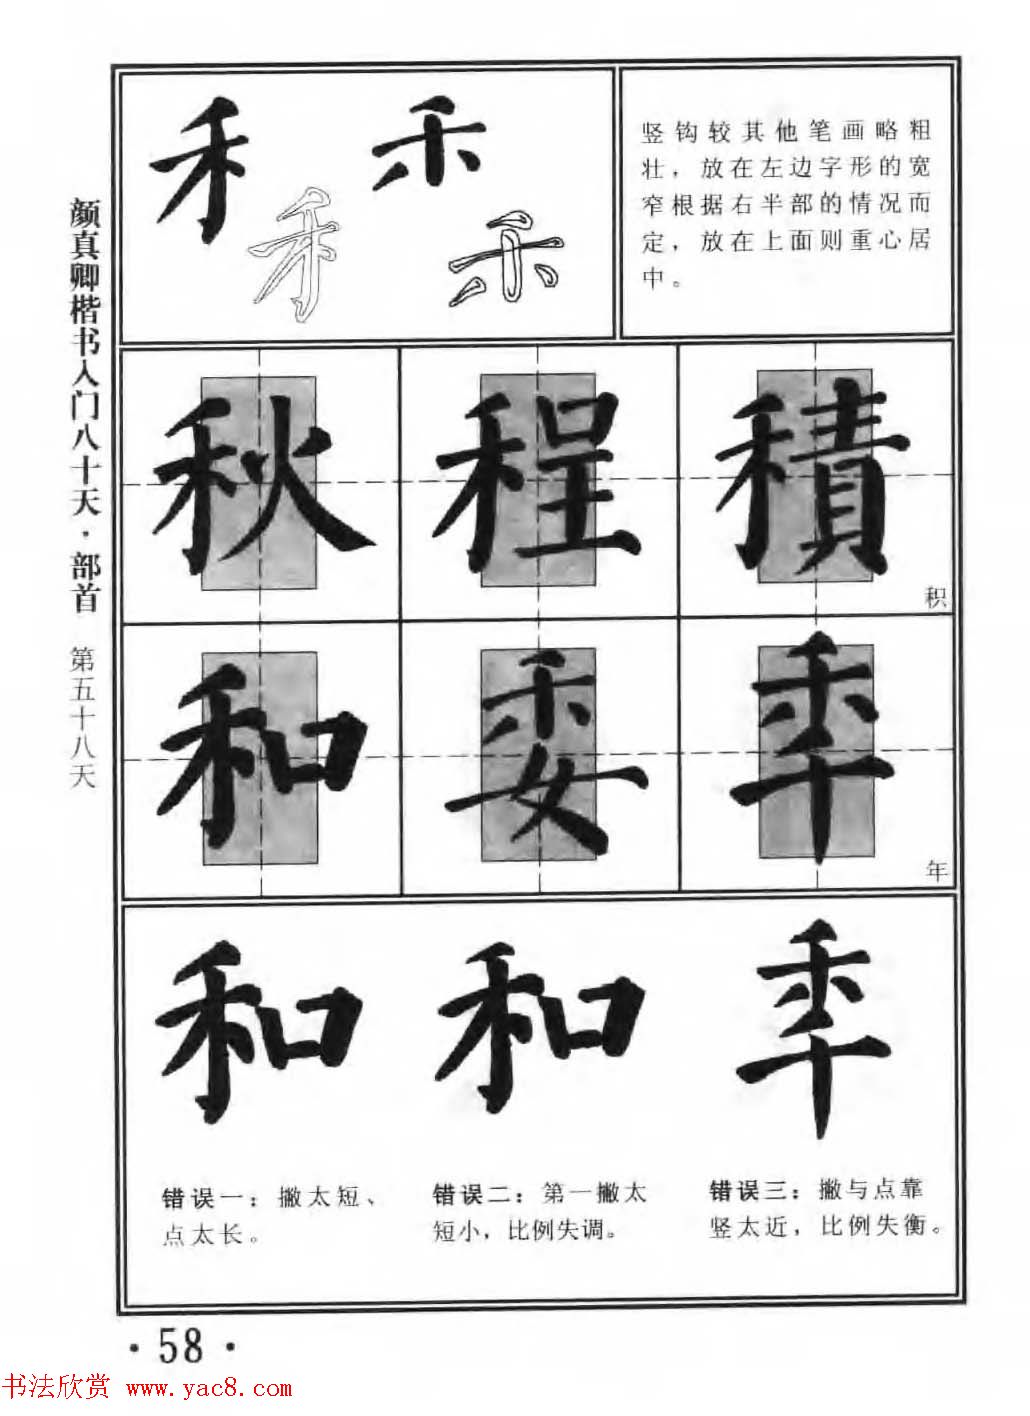 颜真卿楷书入门八十天·部首 第五十八天
禾 禾
竖钩较其他笔画略粗
壮，放在左边字形的宽
窄根据右半部的情况而
定，放在上面则重心居
中。
秋 程 積
积
和 委 年
年
和 和 年
错误一：撇太短、
点太长。
错误二：第一撇太
短小，比例失调。
错误三：撇与点靠
竖太近，比例失衡。
·58·
书法欣赏 www.yac8.com